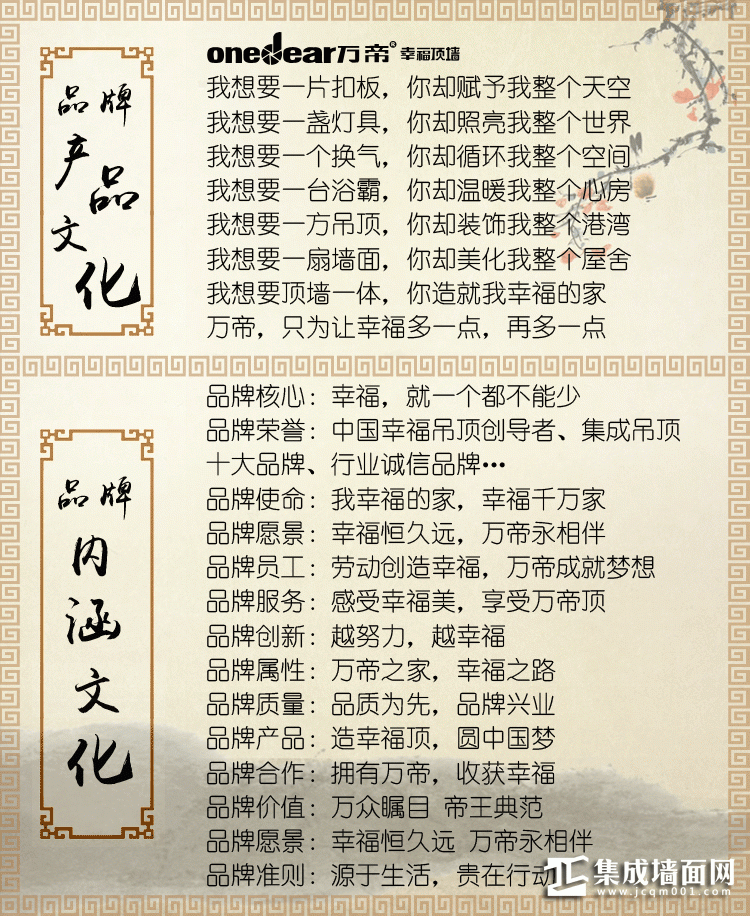 品牌
产品
文化
onedear万帝® 幸福顶墙
我想要一片扣板，你却赋予我整个天空
我想要一盏灯具，你却照亮我整个世界
我想要一个换气，你却循环我整个空间
我想要一台浴霸，你却温暖我整个心房
我想要一方吊顶，你却装饰我整个港湾
我想要一扇墙面，你却美化我整个屋舍
我想要顶墙一体，你造就我幸福的家
万帝，只为让幸福多一点，再多一点
品牌
内涵文化
品牌核心：幸福，就一个都不能少
品牌荣誉：中国幸福吊顶创导者、集成吊顶
十大品牌、行业诚信品牌…
品牌使命：我幸福的家，幸福千万家
品牌愿景：幸福恒久远，万帝永相伴
品牌员工：劳动创造幸福，万帝成就梦想
品牌服务：感受幸福美，享受万帝顶
品牌创新：越努力，越幸福
品牌属性：万帝之家，幸福之路
品牌质量：品质为先，品牌兴业
品牌产品：造幸福顶，圆中国梦
品牌合作：拥有万帝，收获幸福
品牌价值：万众瞩目 帝王典范
品牌愿景：幸福恒久远 万帝永相伴
品牌准则：源于生活，贵在行动
集成墙面网
www.jcqm001.com